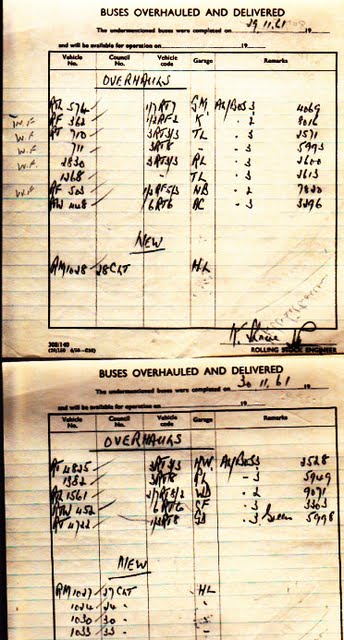 BUSES OVERHAULED AND DELIVERED
The undermentioned buses were completed on 29.11.61 19
and will be available for operation on 19
Vehicle No. Council No. Vehicle code Garage Remarks
OVERHAULS
574 1/7RT7 GM 3 4069
W.F. RF 362 1/2RF2 K - 2
W.F. RT 710 3RT3/3 TL - 3 2571
W.F. 711 3RT8 - - 3 5993
W.F. 2830 3RT3/3 RL - 3 2600
1268 - TL - 3 2613
W.F. RF 503 NB - 2
448 6RT6 - 3 3296
NEW
RM1028 28CLT HL
ROLLING STOCK ENGINEER
BUSES OVERHAULED AND DELIVERED
The undermentioned buses were completed on 30.11.61 19
and will be available for operation on 19
Vehicle No. Council No. Vehicle code Garage Remarks
OVERHAULS
RT 4825 3RT3/3 HW 3 2528
1382 3RT8 RL - 3
1561 WD - 2 9071
RTW 452 6RT6 SF - 3 3303
RT 4722 1/3RT8 - 3 Green 5998
NEW
RM1027 27CLT HL
1024 24 - "
1030 30 - "
1033 33 - "